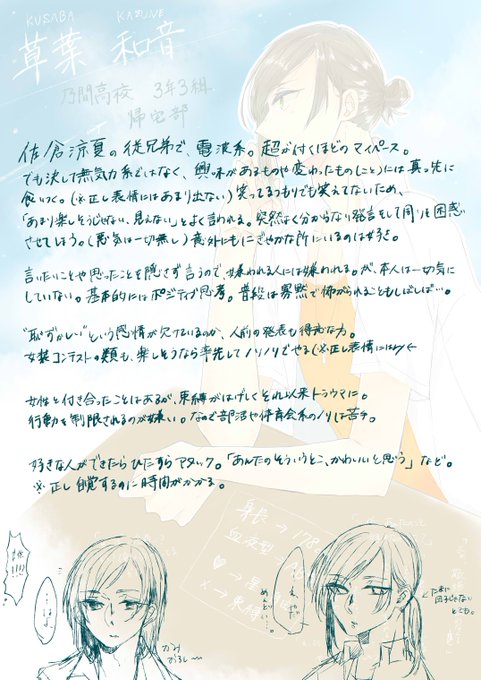 KUSABA KAZUNE
草葉 和音
乃間高校 3年3組
帰宅部
佐倉涼夏の従兄弟で、電波系。超が付くほどのマイペース。
でも決して無気力系ではなく、興味があるものや変わったもの(こと)には真っ先に
食いつく。(※正し表情にはあまり出ない)笑ってるつもりでも笑えてないため、
「あまり楽しそうじゃない、見えない」とよく言われる。突然よく分からない発言をして周りを困惑
させてしまう。(悪気は一切無し)意外にもにぎやかな所にいるのは好き。
言いたいことや思ったことを隠さず言うので、嫌われる人には嫌われる。が、本人は一切気に
していない。基本的にはポジティブ思考。普段は寡黙で怖がられることもしばしば…。
"恥ずかしい"という感情が欠けているのか、人前の発表も得意な方。
女装コンテストの類も、楽しそうなら率先してノリノリでやる(※正し表情には
女性と付き合ったことはあるが、束縛がはげしくそれ以来トラウマに。
行動を制限されるのが嫌い。なので部活や体育会系のノリは苦手。
好きな人ができたらひたすらアタック。「あんたのそういうとこ、かわいいと思う」など。
※正し自覚するのに時間がかかる。
身長→178
血液型
♡→黒
×→束縛
…はよ
かみ
おろし〜
…やだ
めんどい…
←たまに
団子じゃない
ことも。